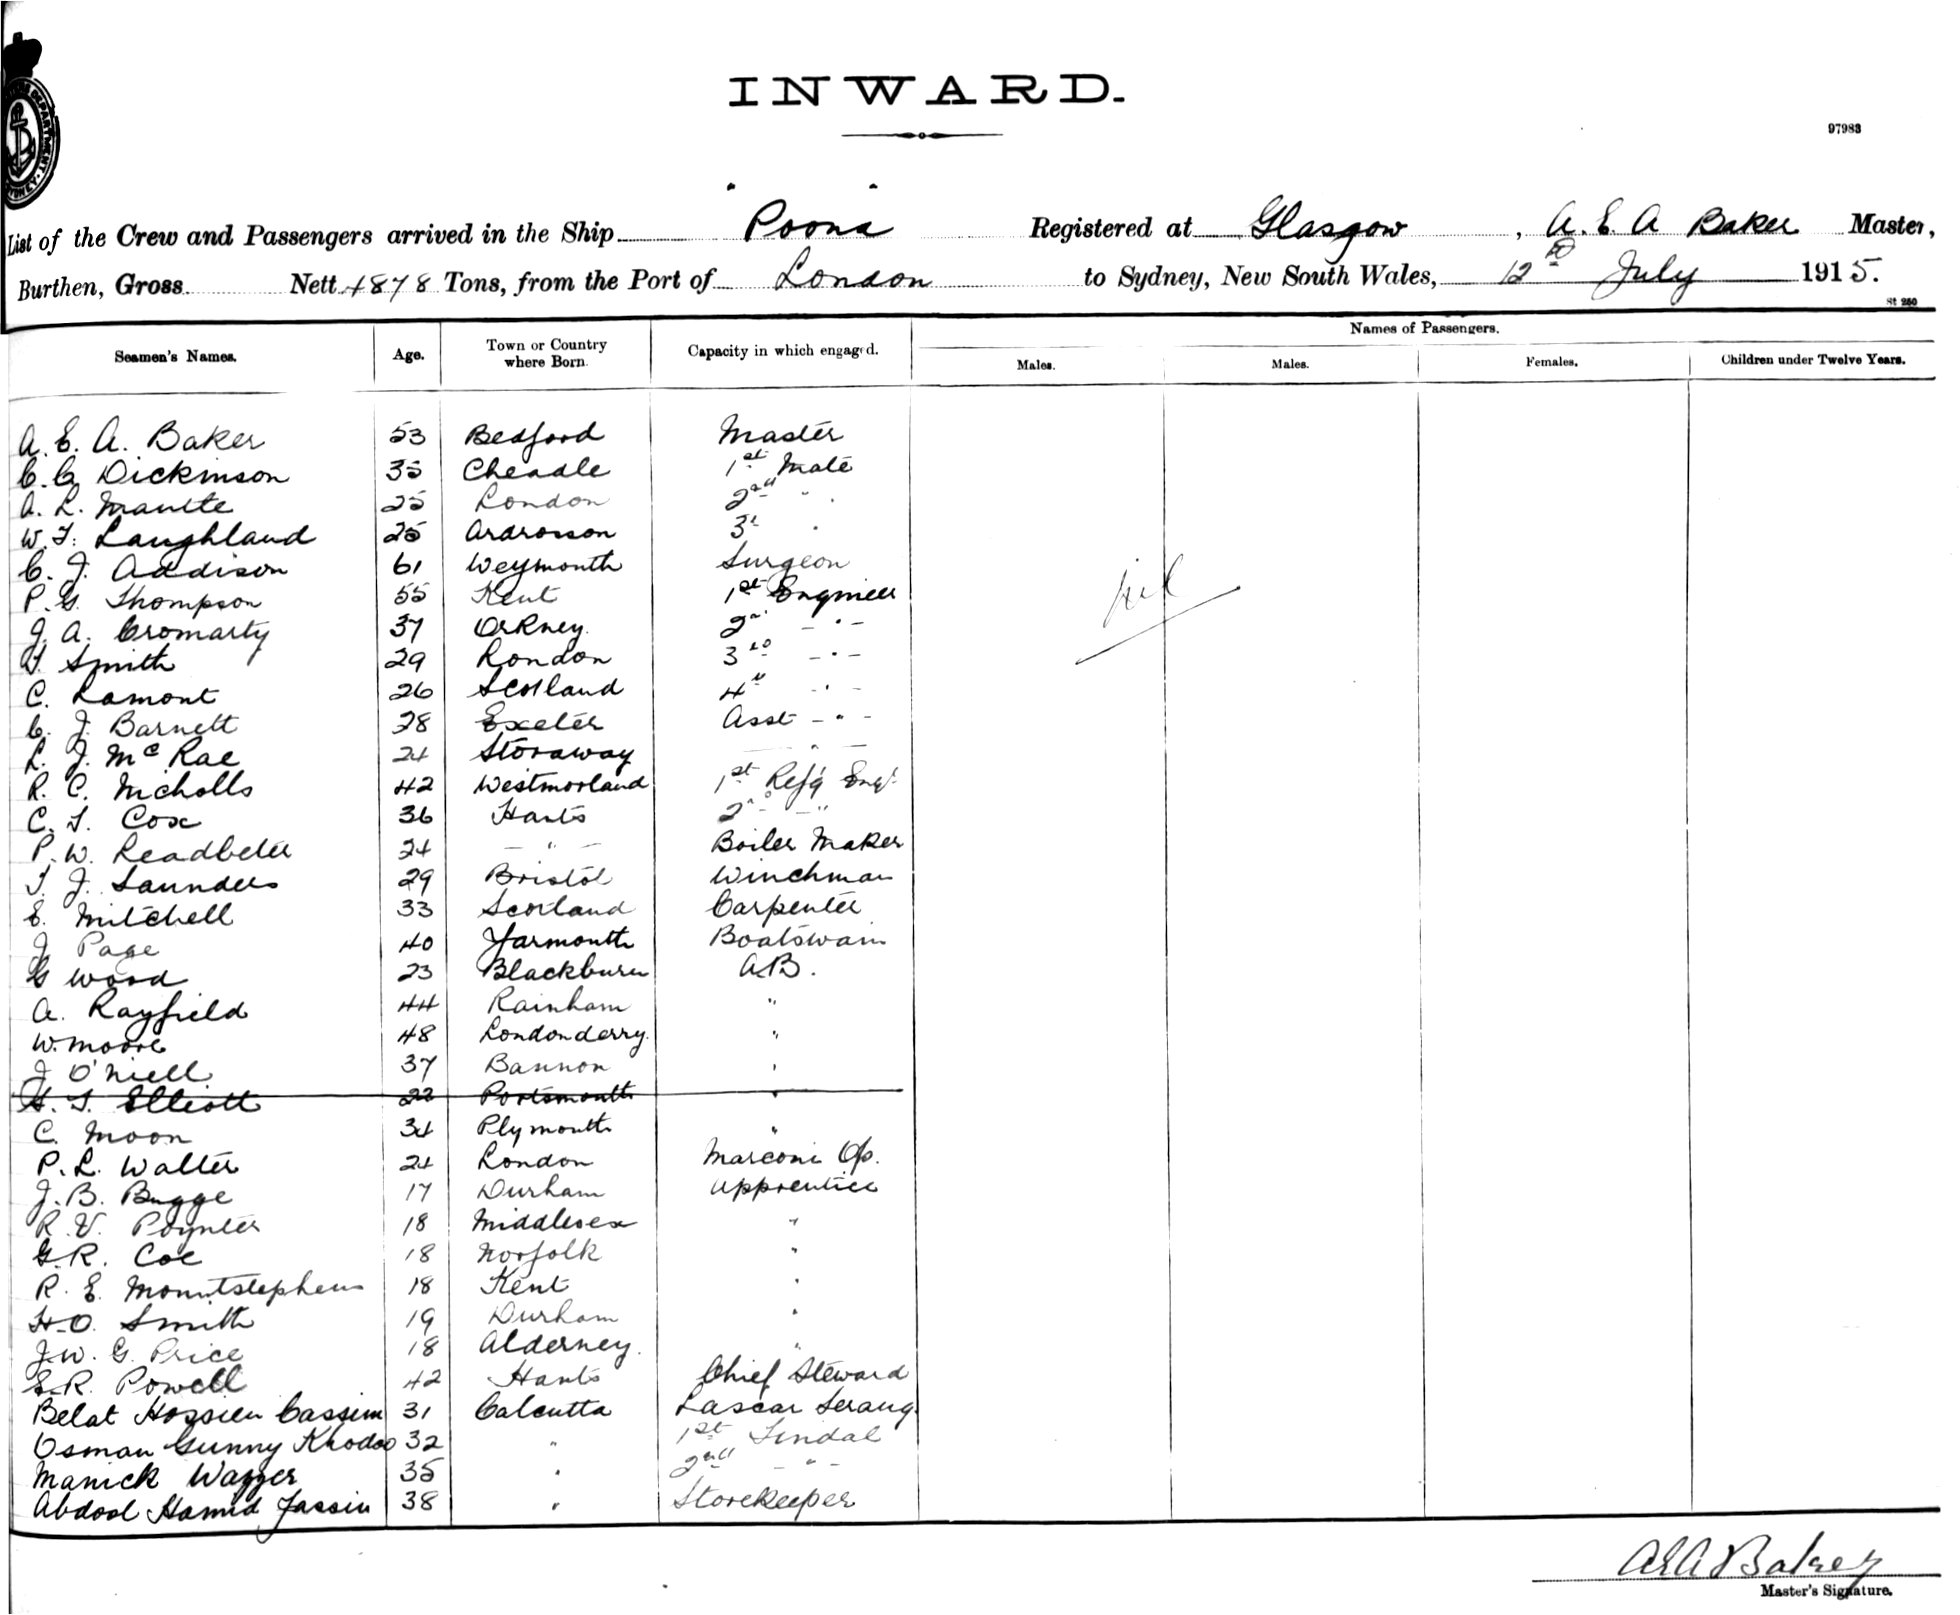 INWARD.
97983
List of the Crew and Passengers arrived in the Ship "Poona" Registered at Glasgow, A. E. A Baker Master,
Burthen, Gross Nett 4878 Tons, from the Port of London to Sydney, New South Wales, 12th July 1915.
St 250
Seamen's Names. Age. Town or Country where Born. Capacity in which engaged. Names of Passengers.
Males. Males. Females. Children under Twelve Years.
A. E. A. Baker 53 Bedford Master
C. C. Dickinson 35 Cheadle 1st Mate
A. L. Mantle 25 London 2nd "
W. F. Laughland 25 Ardrossan 3d "
C. J. Addison 61 Weymouth Surgeon
P. G. Thompson 55 Kent 1st Engineer
J. A. Cromarty 37 Orkney. 2nd - " -
T. Smith 29 London 3rd - " -
C. Lamont 26 Scotland 4th " -
C. J. Barnett 28 Exeter Asst - " -
L. J. McRae 24 Storaway - " -
R. C. Nicholls 42 Westmorland 1st Refg Engr
C. T. Cox 36 Hants 2nd - "
P. W. Leadbeter 24 - " - Boiler Maker
T. J. Saunders 29 Bristol Winchman
E. Mitchell 33 Scotland Carpenter
J Page 40 Yarmouth Boatswain
G Wood 23 Blackburn A.B.
A. Rayfield 44 Rainham "
W. Moore 48 Londonderry. "
J O'Niell 37 Bannon "
H. T. Elliott 22 Portsmouth "
C. Moon 34 Plymouth "
P. L. Walter 24 London Marconi Op.
J. B. Bugge 17 Durham Apprentice
R. V. Poynter 18 Middlesex "
G. R. Coe 18 Norfolk "
R. E. Mountstephens 18 Kent "
H. O. Smith 19 Durham "
J. W. G. Price 18 Alderney. "
E. R. Powell 42 Hants Chief Steward
Belat Hossien Cassim 31 Calcutta Lascar Serang
Osman Gunny Khodoo 32 " 1st Tindal
Manick Wazzer 35 " 2nd - " -
Abdool Hamid Jassin 38 " Storekeeper
nil
A E A Baker
Master's Signature.